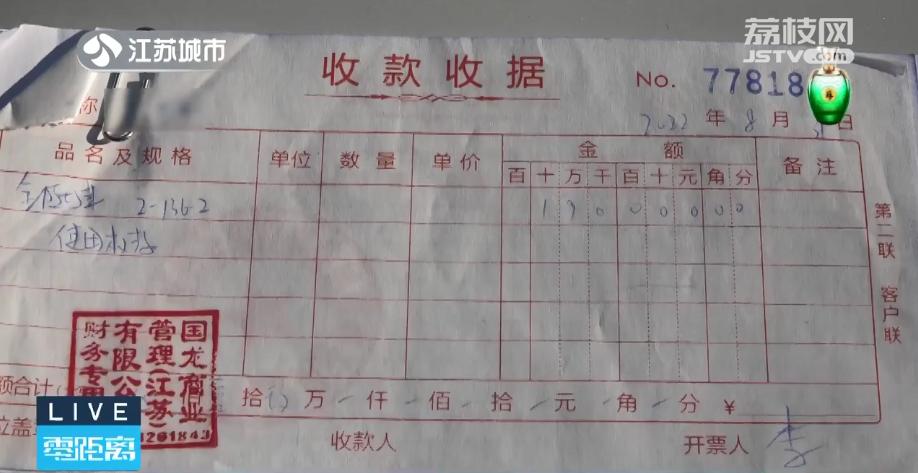 江苏城市
荔枝网
JSTV.com
收款收据
No. 77818
称
2022 年 8 月 日
品名及规格 单位 数量 单价 金额 备注
百 十 万 千 百 十 元 角 分
2-136-2 1 9 0 0 0 0 0 0
使用权
第二联 客户联
国龙商业
管理(江苏)
有限公
财务专用
额合计 拾 万 仟 佰 拾 元 角 分 ¥
位盖 收款人 开票人 李
LIVE
零距离